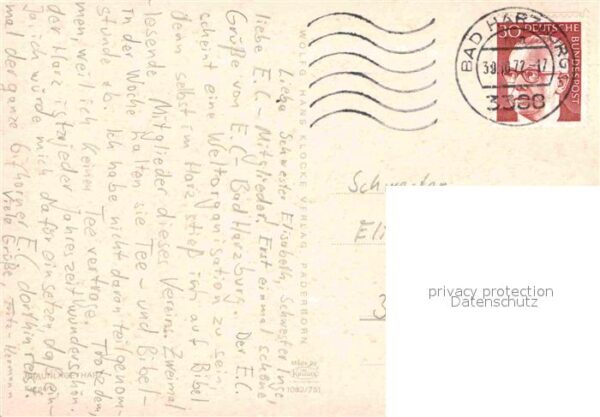 Liebe Schwester Elisabeth, Schwester Inge
liebe E.C.-Mitglieder! Erst einmal schöne
Grüße vom E.C.-Bad Harzburg. Der E.C.
scheint eine Weltorganisation zu sein
denn selbst im Harz stieß ich auf Bibel-
lesende Mitglieder dieses Vereins. Zweimal
in der Woche halten sie Tee- und Bibel-
stunde ab. Ich habe nicht daran teilgenom-
men weil ich keinen Tee vertrage. Trotzdem
der Harz ist zu jeder Jahreszeit wunderschön.
Ja ich würde mich dafür einsetzen daß ein-
mal der ganze Gifhorner E.C. dorthin reist.
Viele Grüße, Fritz-Hermann
WOLFG. HANS KLOCKE VERLAG PADERBORN
1082/751
BAD HARZBURG 1
3388
30 DEUTSCHE BUNDESPOST
Schwester
Eli
3
privacy protection
Datenschutz